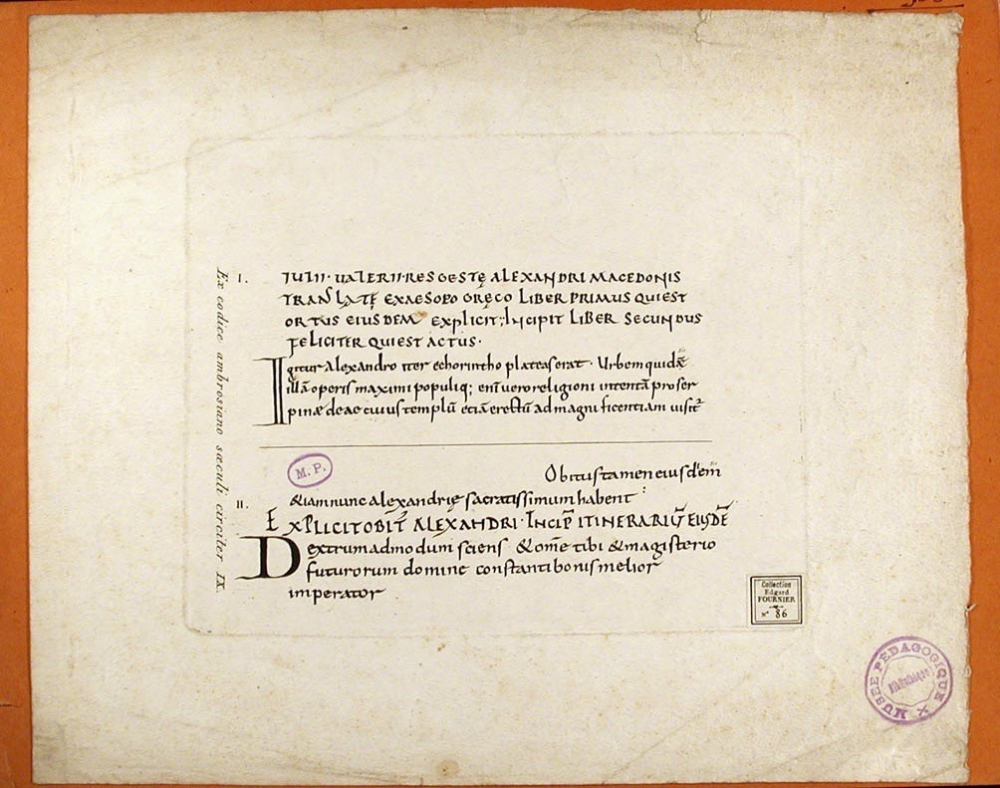 Ex codice ambrosiano sæculi circiter IX.
I.
IULII· VALERII· RES GESTĘ ALEXANDRI MACEDONIS
TRANSLATĘ EXAESOPO GRĘCO LIBER PRIMUS QUIEST
ORTUS EIUSDEM EXPLICIT; INCIPIT LIBER SECUNDUS
FELICITER QUIEST ACTUS·
Igitur Alexandro iter echorintho plateas erat· Urbem quidē
illā operis maximi populiq; enī uero religioni intentā proser
pinæ deae cuius templū etiā erectū ad magnificentiam uisit
M. P.
Obitus tamen eiusdem
II.
&iam nunc alexandrię sacratissimum habent
EXPLICIT OBIT ALEXANDRI· INCIP ITINERARIŪ EIUSDĒ
Dextrum admodum sciens & om̄e tibi & magisterio
futurorum domine constanti bonis melior
imperator
Collection
Edgard
FOURNIER
N° 86
MUSÉE PÉDAGOGIQUE